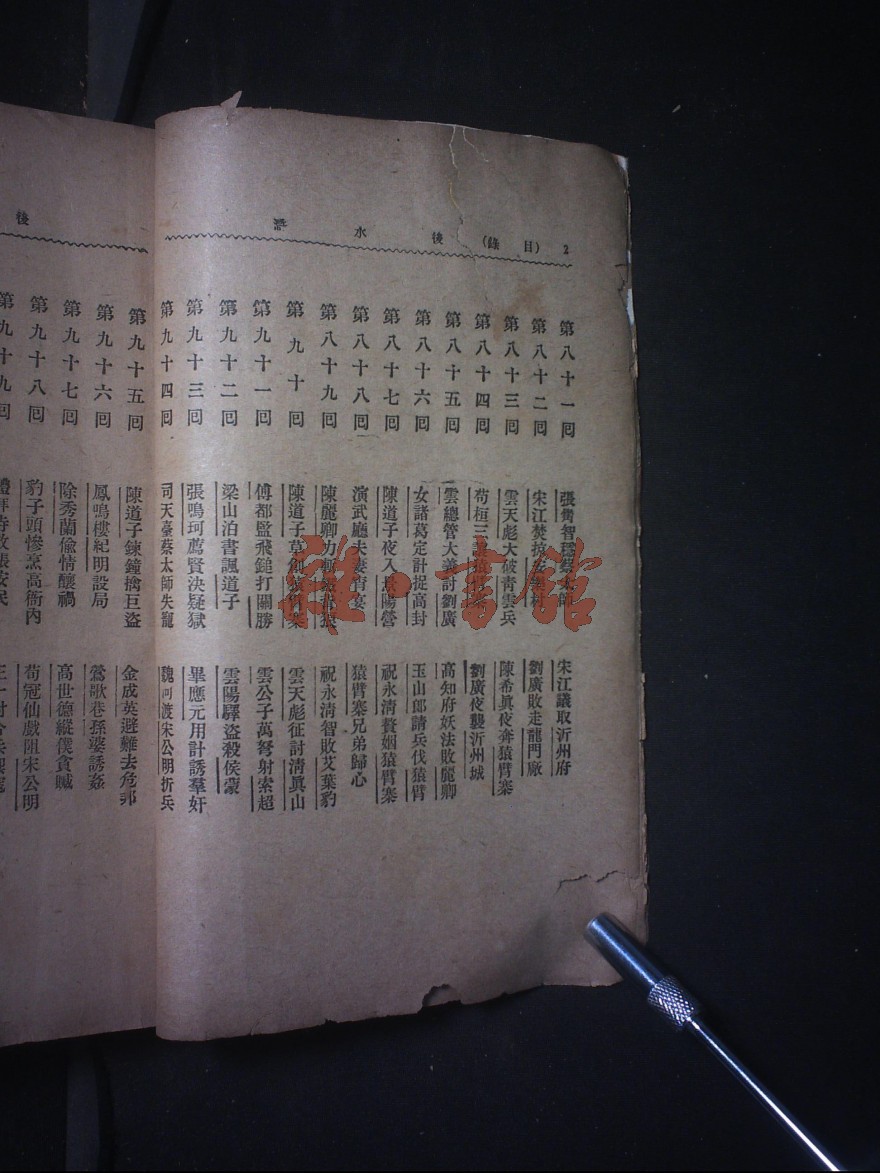 2 (目錄) 後水滸
第八十一回 張觷智穩蔡太師 宋江議取沂州府
第八十二回 宋江焚掠安樂村 劉廣敗走龍門廠
第八十三回 雲天彪大破青雲兵 陳希眞夜奔猿臂寨
第八十四回 苟桓三讓猿臂寨 劉廣夜襲沂州城
第八十五回 雲總管大義討劉廣 高知府妖法敗麗卿
第八十六回 女諸葛定計捉高封 玉山郎請兵伐猿臂
第八十七回 陳道子夜入景陽營 祝永清贅姻猿臂寨
第八十八回 演武廳夫妻宵宴 猿臂寨兄弟歸心
第八十九回 陳麗卿力斬 祝永清智敗艾葉豹
第九十回 陳道子草創猿臂寨 雲天彪征討清眞山
第九十一回 傅都監飛鎚打關勝 雲公子萬弩射索超
第九十二回 梁山泊書諷道子 雲陽驛盜殺侯蒙
第九十三回 張鳴珂薦賢決疑獄 畢應元用計誘羣奸
第九十四回 司天臺蔡太師失寵 魏河渡宋公明折兵
第九十五回 陳道子鍊鐘擒巨盜 金成英避難去危邦
第九十六回 鳳鳴樓紀明設局 鶯歌巷孫婆誘姦
第九十七回 除秀蘭偷情釀禍 高世德縱僕貪贓
第九十八回 豹子頭慘烹高衙內 苟冠仙戲阻宋公明
第九十九回 禮拜寺放張安民
後
雒·書館